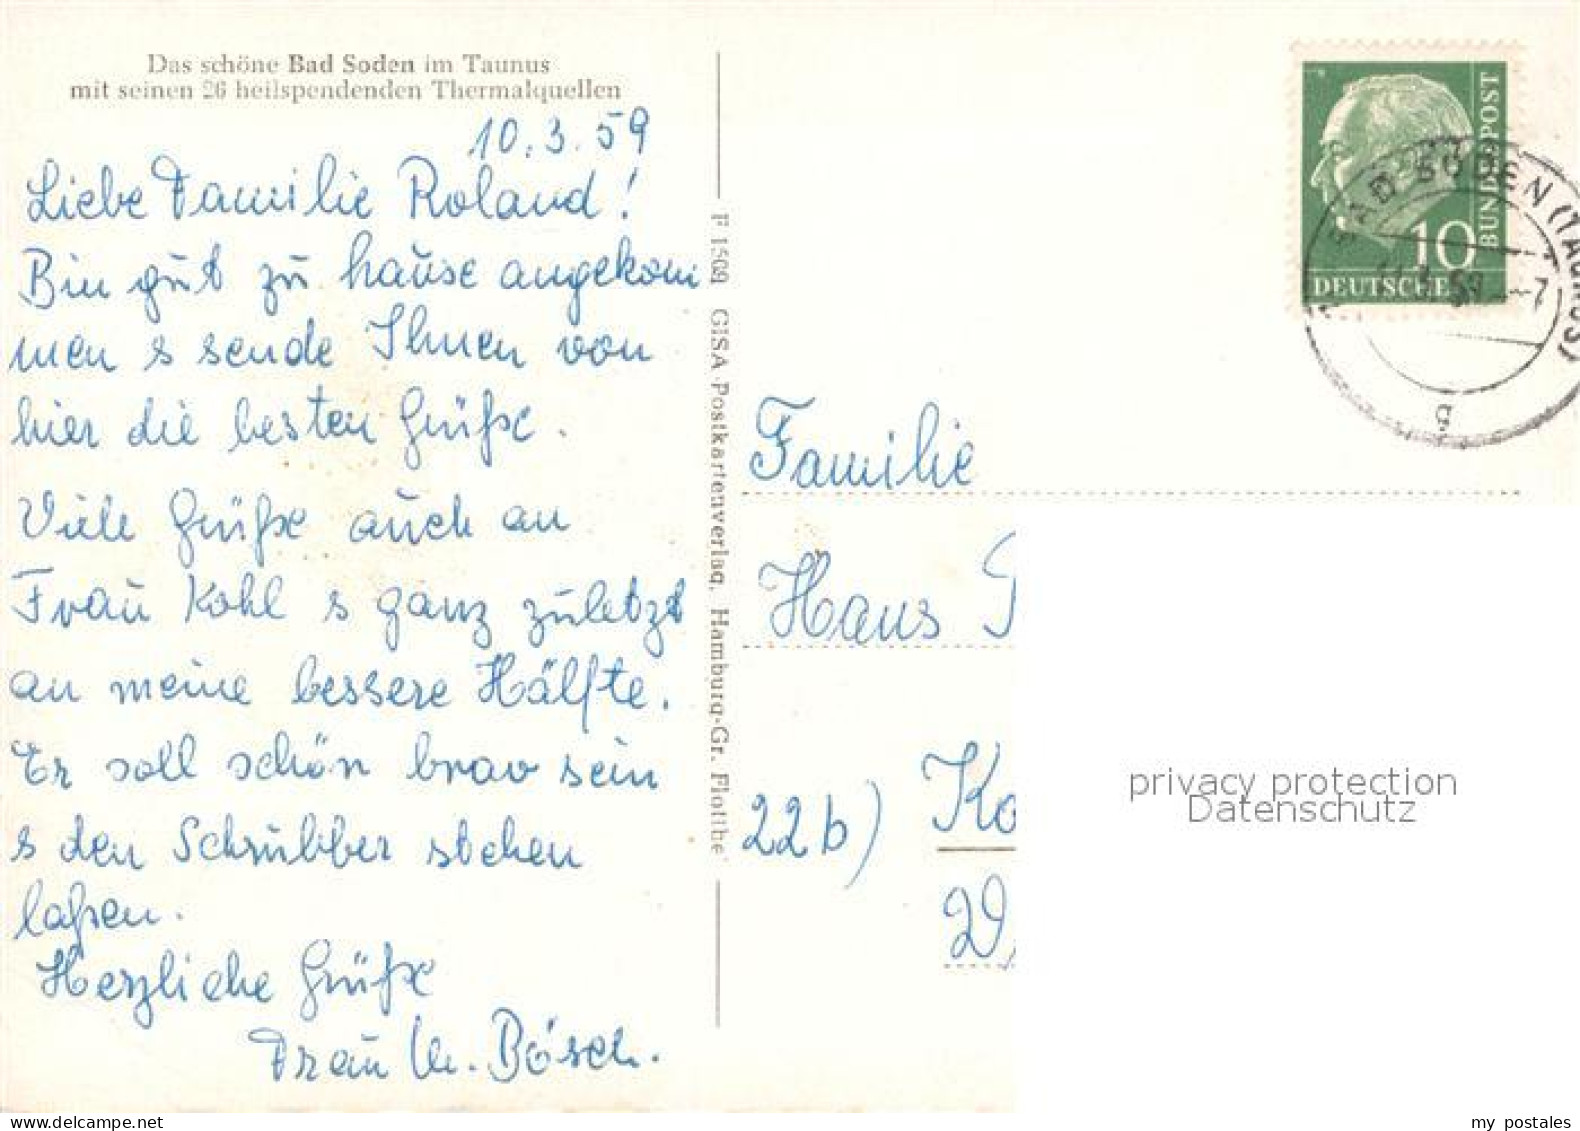 Das schöne Bad Soden im Taunus
mit seinen 26 heilspendenden Thermalquellen
10.3.59
Liebe Familie Roland!
Bin gut zu hause angekom
men s sende Ihnen von
hier die besten Grüße.
Viele Grüße auch an
Frau Kohl s ganz zuletzt
an meine bessere Hälfte.
Er soll schön brav sein
s den Schrubber stehen
laßen.
Herzliche Grüße
Frau W. Bösch.
F 1509 GISA-Postkartenverlag, Hamburg-Gr. Flottbek
DEUTSCHE
BUNDESPOST
10
BAD SODEN (TAUNUS)
g
Familie
Hans
22b) Ko
privacy protection
Datenschutz
my postales